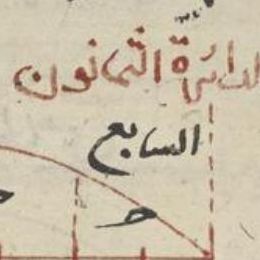 الدائرة الثمانون
السابع